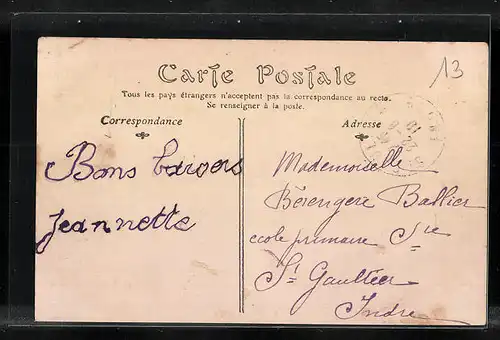 13
Carte Postale
Tous les pays étrangers n'acceptent pas la correspondance au recto.
Se renseigner à la poste.
Correspondance
Adresse
Bons baisers
Jeannette
Mademoiselle
Bérengère Ballier
école primaire Sre
St Gaultier
Indre